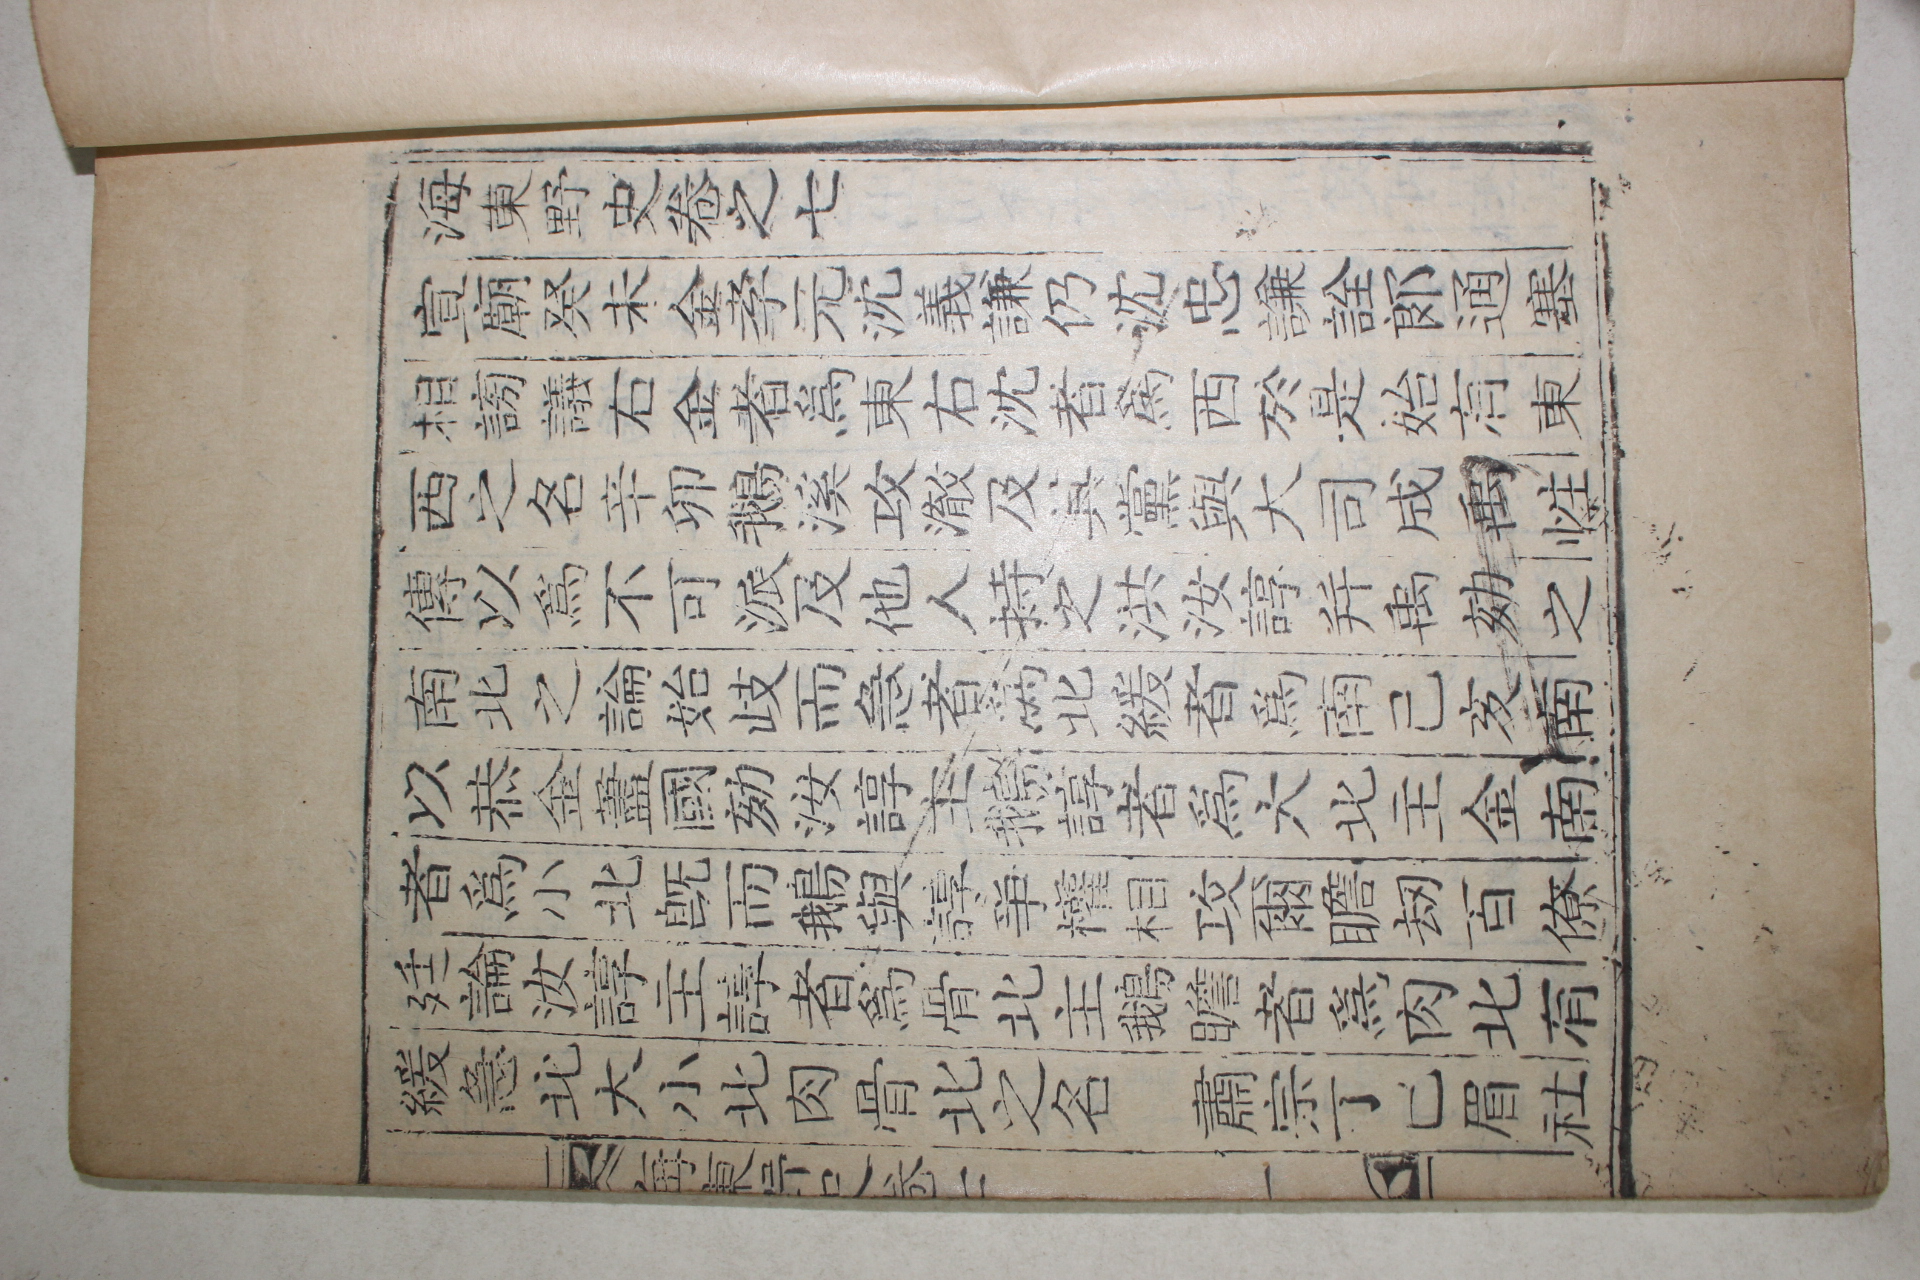 海東野史卷之七
宣廟癸未金孝元沈義謙仍沈忠謙詮郎通塞
相謗議右金者爲東右沈者爲西於是始有東
西之名辛卯鵝溪攻澈及其黨與大司成禹性
傳以爲不可派及他人持之洪汝諄幷禹劾之
南北之論始歧而急者爲北緩者爲南己亥南
以恭金藎國劾汝諄主鵝諄者爲大北主金南
者爲小北旣而鵝與諄爭權相攻爾瞻刼百僚
廷論汝諄主諄者爲骨北主鵝瞻者爲肉北有
緩急北大小北肉骨北之名 肅宗丁巳眉社
海東野史卷七 一